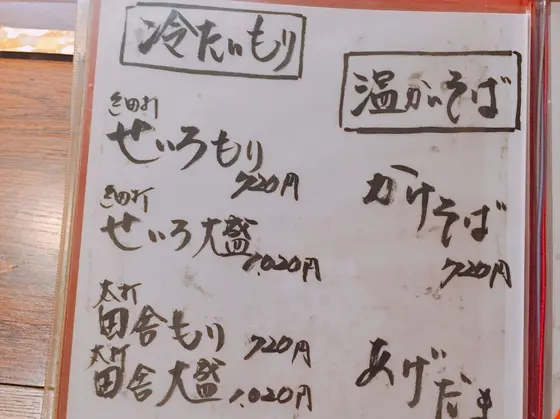 冷たいもり
細打
せいろもり
720円
細打
せいろ大盛
1,020円
太打
田舎もり 720円
太打
田舎大盛 1,020円
温かいそば
かけそば
720円
あげだま